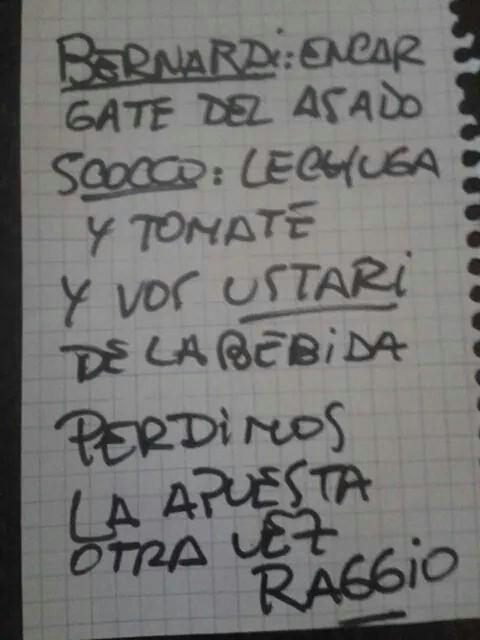 BERNARDi: ENCAR
GATE DEL ASADO
SCOCCO: LECHUGA
Y TOMATE
Y VOS USTARi
DE LA BEBiDA
PERDiMOS
LA APUESTA
OTRA VEZ
RAGGiO